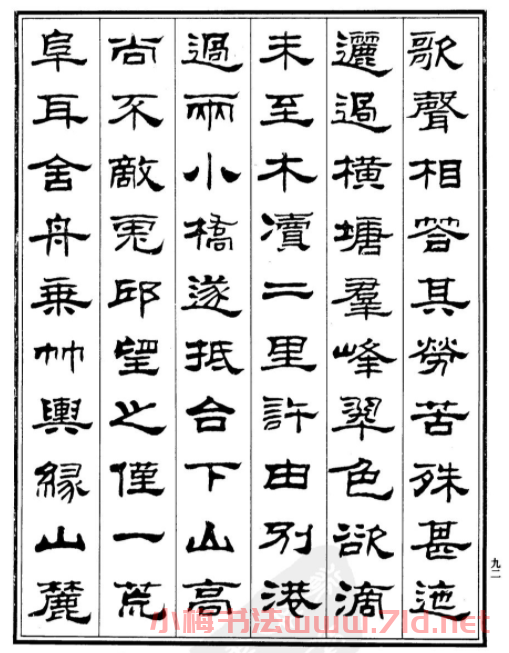 歌聲相答其勞苦殊甚迤
邐過橫塘羣峰翠色欲滴
未至木瀆二里許由別港
過兩小橋遂抵台下山高
尚不敵虎邱望之僅一荒
阜耳舍舟乘竹輿緣山麓
九二
小梅书法www.7ld.net